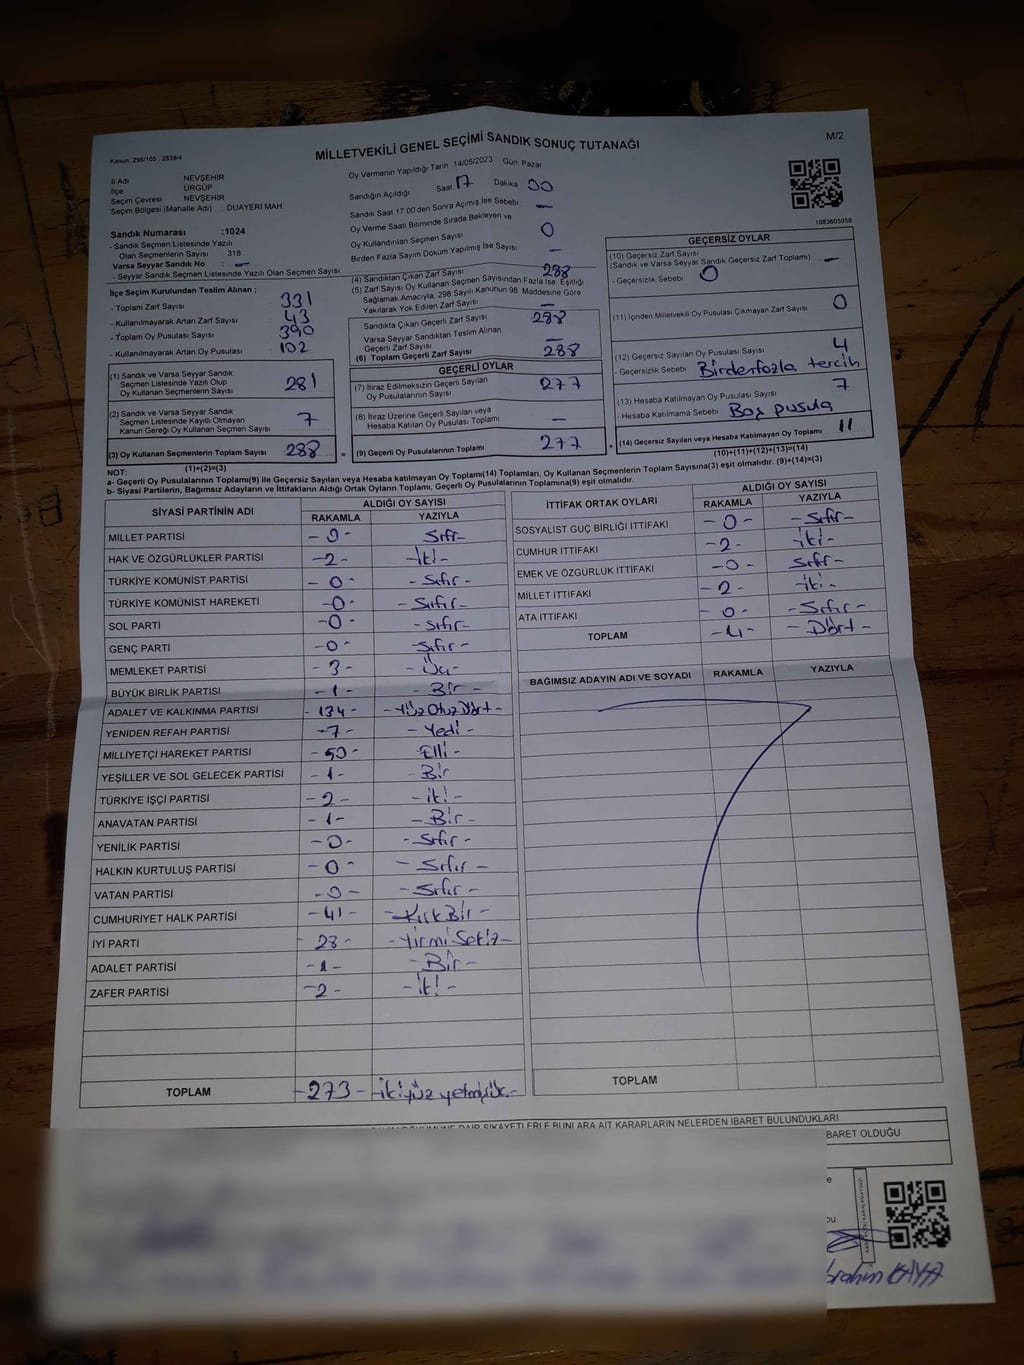 Kanun: 298/105 , 2839/4
MİLLETVEKİLİ GENEL SEÇİMİ SANDIK SONUÇ TUTANAĞI
M/2
İl Adı NEVŞEHİR
İlçe ÜRGÜP
Seçim Çevresi NEVŞEHİR
Seçim Bölgesi (Mahalle Adı) : DUAYERİ MAH
Sandık Numarası :1024
- Sandık Seçmen Listesinde Yazılı
Olan Seçmenlerin Sayısı 318
Varsa Seyyar Sandık No : —
- Seyyar Sandık Seçmen Listesinde Yazılı Olan Seçmen Sayısı
Oy Vermenin Yapıldığı Tarih 14/05/2023 Gün Pazar
Sandığın Açıldığı Saat 17 Dakika 00
Sandık Saat 17.00'den Sonra Açılmış İse Sebebi —
Oy Verme Saati Bitiminde Sırada Bekleyen ve
Oy Kullandırılan Seçmen Sayısı 0
Birden Fazla Sayım Döküm Yapılmış İse Sayısı —
1083605058
İlçe Seçim Kurulundan Teslim Alınan ;
- Toplam Zarf Sayısı 331
- Kullanılmayarak Artan Zarf Sayısı 43
- Toplam Oy Pusulası Sayısı 390
- Kullanılmayarak Artan Oy Pusulası 102
(1) Sandık ve Varsa Seyyar Sandık
Seçmen Listesinde Yazılı Olup
Oy Kullanan Seçmenlerin Sayısı 281
(2) Sandık ve Varsa Seyyar Sandık
Seçmen Listesinde Kayıtlı Olmayan
Kanun Gereği Oy Kullanan Seçmen Sayısı 7
(3) Oy Kullanan Seçmenlerin Toplam Sayısı 288 =
(1)+(2)=(3)
(4) Sandıktan Çıkan Zarf Sayısı 288
(5) Zarf Sayısı Oy Kullanan Seçmen Sayısından Fazla İse, Eşitliği
Sağlamak Amacıyla, 298 Sayılı Kanunun 98. Maddesine Göre
Yakılarak Yok Edilen Zarf Sayısı —
Sandıkta Çıkan Geçerli Zarf Sayısı 288
Varsa Seyyar Sandıktan Teslim Alınan
Geçerli Zarf Sayısı —
(6) Toplam Geçerli Zarf Sayısı 288
GEÇERLİ OYLAR
(7) İtiraz Edilmeksizin Geçerli Sayılan
Oy Pusulalarının Sayısı 277
(8) İtiraz Üzerine Geçerli Sayılan veya
Hesaba Katılan Oy Pusulası Toplamı —
(9) Geçerli Oy Pusulalarının Toplamı 277 +
GEÇERSİZ OYLAR
(10) Geçersiz Zarf Sayısı
(Sandık ve Varsa Seyyar Sandık Geçersiz Zarf Toplamı) —
- Geçersizlik Sebebi 0
(11) İçinden Milletvekili Oy Pusulası Çıkmayan Zarf Sayısı 0
(12) Geçersiz Sayılan Oy Pusulası Sayısı 4
- Geçersizlik Sebebi Birdenfazla tercih
(13) Hesaba Katılmayan Oy Pusulası Sayısı 7
- Hesaba Katılmama Sebebi Boş pusula
(14) Geçersiz Sayılan veya Hesaba Katılmayan Oy Toplamı 11
(10)+(11)+(12)+(13)=(14)
NOT:
a- Geçerli Oy Pusulalarının Toplamı(9) ile Geçersiz Sayılan veya Hesaba katılmayan Oy Toplamı(14) Toplamları, Oy Kullanan Seçmenlerin Toplam Sayısına(3) eşit olmalıdır. (9)+(14)=(3)
b- Siyasi Partilerin, Bağımsız Adayların ve İttifakların Aldığı Ortak Oyların Toplamı, Geçerli Oy Pusulalarının Toplamına(9) eşit olmalıdır.
SİYASİ PARTİNİN ADI ALDIĞI OY SAYISI
RAKAMLA YAZIYLA
MİLLET PARTİSİ -0- Sıfır-
HAK VE ÖZGÜRLÜKLER PARTİSİ -2- -İki-
TÜRKİYE KOMÜNİST PARTİSİ -0- -Sıfır-
TÜRKİYE KOMÜNİST HAREKETİ -0- -Sıfır-
SOL PARTİ -0- -Sıfır-
GENÇ PARTİ -0- -Sıfır-
MEMLEKET PARTİSİ -3- -Üç-
BÜYÜK BİRLİK PARTİSİ -1- -Bir-
ADALET VE KALKINMA PARTİSİ -134- -Yüz Otuz Dört-
YENİDEN REFAH PARTİSİ -7- -Yedi-
MİLLİYETÇİ HAREKET PARTİSİ -50- -Elli-
YEŞİLLER VE SOL GELECEK PARTİSİ -1- -Bir
TÜRKİYE İŞÇİ PARTİSİ -2- -iki-
ANAVATAN PARTİSİ -1- -Bir-
YENİLİK PARTİSİ -0- -Sıfır-
HALKIN KURTULUŞ PARTİSİ -0- -Sıfır-
VATAN PARTİSİ -0- -Sıfır-
CUMHURİYET HALK PARTİSİ -41- -Kırk Bir-
İYİ PARTİ -28- -Yirmi Sekiz-
ADALET PARTİSİ -1- -Bir-
ZAFER PARTİSİ -2- -iki-
TOPLAM -273-
İTTİFAK ORTAK OYLARI ALDIĞI OY SAYISI
RAKAMLA YAZIYLA
SOSYALİST GÜÇ BİRLİĞİ İTTİFAKI -0- -Sıfır-
CUMHUR İTTİFAKI -2- -iki-
EMEK VE ÖZGÜRLÜK İTTİFAKI -0- Sıfır-
MİLLET İTTİFAKI -2- -iki-
ATA İTTİFAKI -0- -Sıfır-
TOPLAM -4- -Dört-
BAĞIMSIZ ADAYIN ADI VE SOYADI RAKAMLA YAZIYLA
TOPLAM
DAİR ŞİKAYETLERLE BUNLARA AİT KARARLARIN NELERDEN İBARET BULUNDUKLARI
BARET OLDUĞU
brahim KAYA